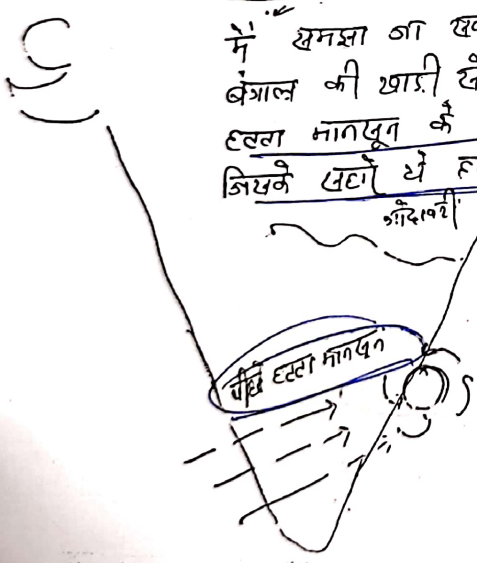 में समझा जा सक
बंगाल की खाड़ी से
हटता मानसून के
जिसके सहारे ये ह
गोदावरी
पीछे हटता मानसून